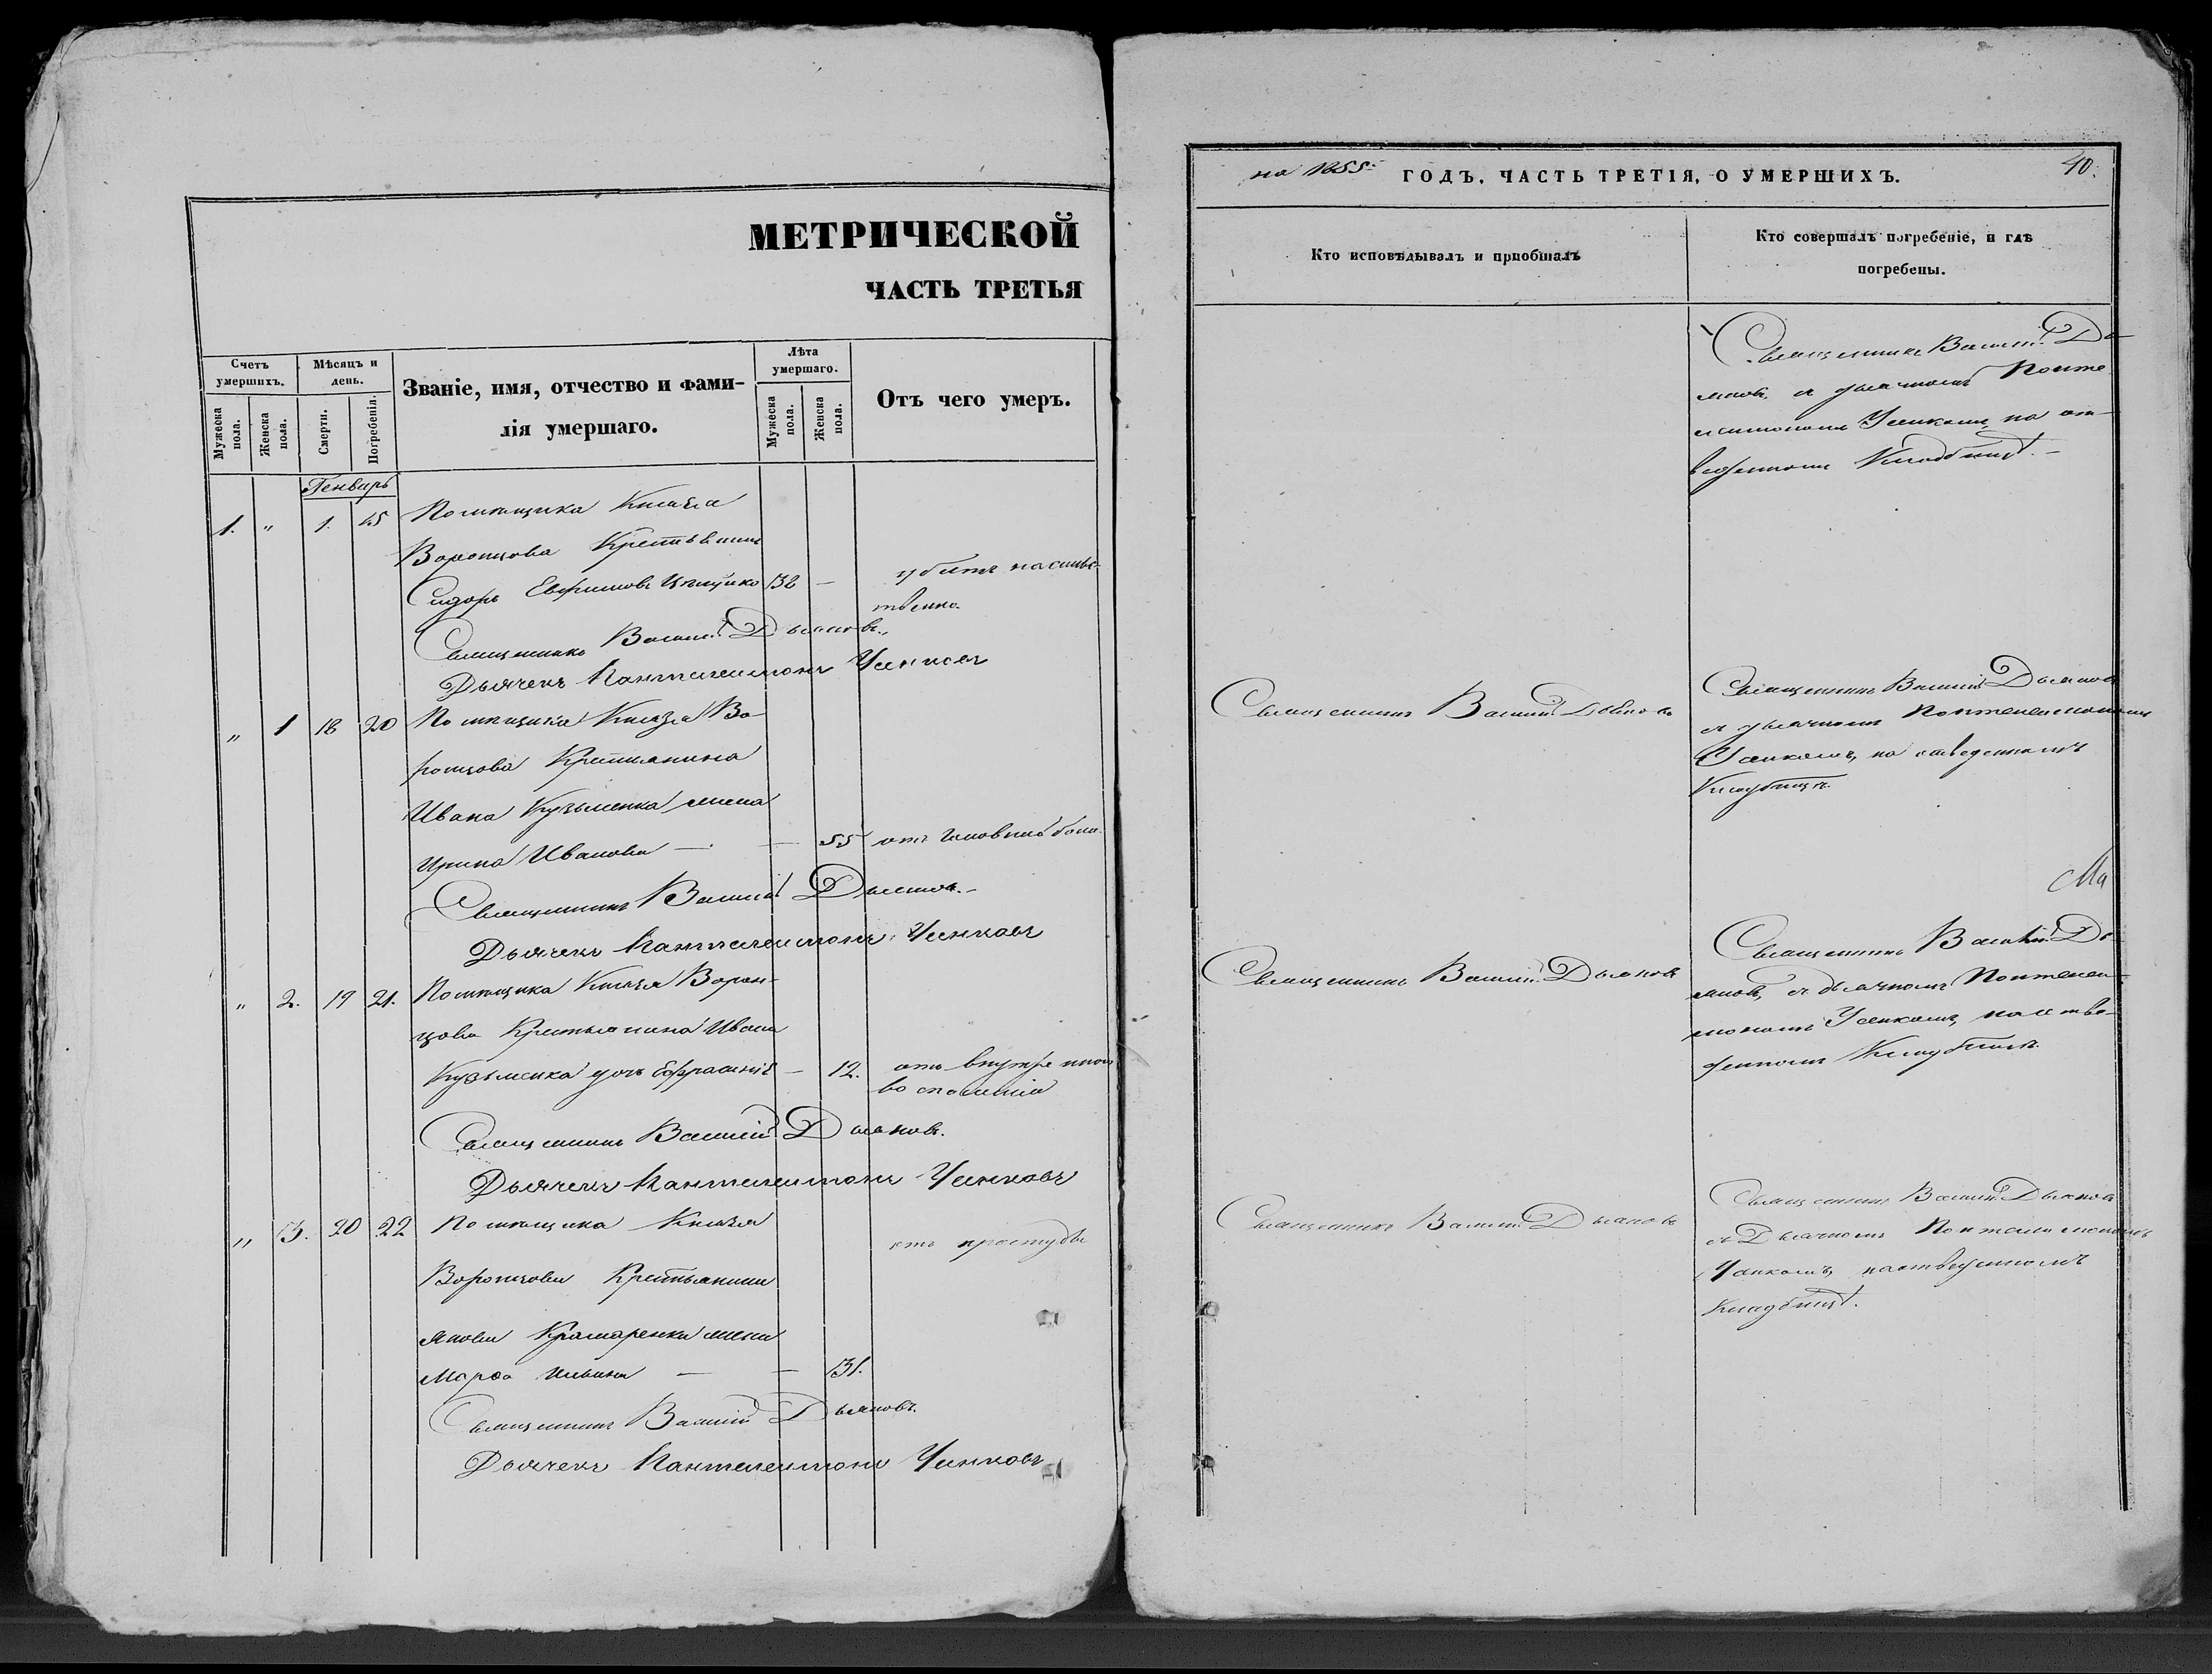 МЕТРИЧЕСКОЙ
ЧАСТЬ ТРЕТЬЯ
Счетъ умершихъ.
Мѣсяцъ и день.
Званіе, имя, отчество и фами-
лія умершаго.
Лѣта умершаго.
Отъ чего умеръ.
Мужеска пола.
Женска пола.
Смерти.
Погребенія.
Мужеска пола.
Женска пола.
Генварь
1. " 1. Помѣщика Князя
Воронцова
Сидоръ 32 — убитъ насильс-
твенно.
Священникъ Василій Дьяковъ.
Дьячекъ Пантелеимонъ Усенковъ
" 1 18 20 Помѣщика Князя Во-
ронцова Крестьянина
Ивана Кузьменка жена
Ирина Иванова — — 55 отъ боли.
Священникъ Василій Дьяковъ.
Дьячекъ Пантелеимонъ Усенковъ
" 2. 19 21. Помѣщика Князя Ворон-
цова Крестьянина Ивана
Кузьменка дочь — 12. отъ
воспаленія
Священникъ Василій Дьяковъ.
Дьячекъ Пантелеимонъ Усенковъ
" 3. 20 22 Помѣщика Князя
отъ простуды
Воронцова Крестьянина
Якова Крамаренка жена
Марфа — — 31.
Священникъ Василій Дьяковъ.
Дьячекъ Пантелеимонъ Усенковъ
на 1855 ГОДЪ, ЧАСТЬ ТРЕТІЯ, О УМЕРШИХЪ. 40.
Кто исповѣдывалъ и пріобщалъ
Кто совершалъ погребеніе, и гдѣ
погребены.
Священникъ Василій Дь-
яковъ, съ дьячкомъ Панте-
леимономъ Усенкомъ, на от-
веденномъ Кладбищѣ. —
Священникъ Василій Дьяковъ
Священникъ Василій Дьяковъ
съ дьячкомъ Пантелеимономъ
Усенкомъ, на отведенномъ
Кладбищѣ.
Священникъ Василій Дьяковъ
Священникъ Василій Дь-
яковъ, съ дьячкомъ Пантелеи-
мономъ Усенкомъ, на отве-
денномъ Кладбищѣ.
Священникъ Василій Дьяковъ
Священникъ Василій Дьяковъ
съ Дьячкомъ Пантелеимономъ
Усенкомъ, на отведенномъ
Кладбищѣ.